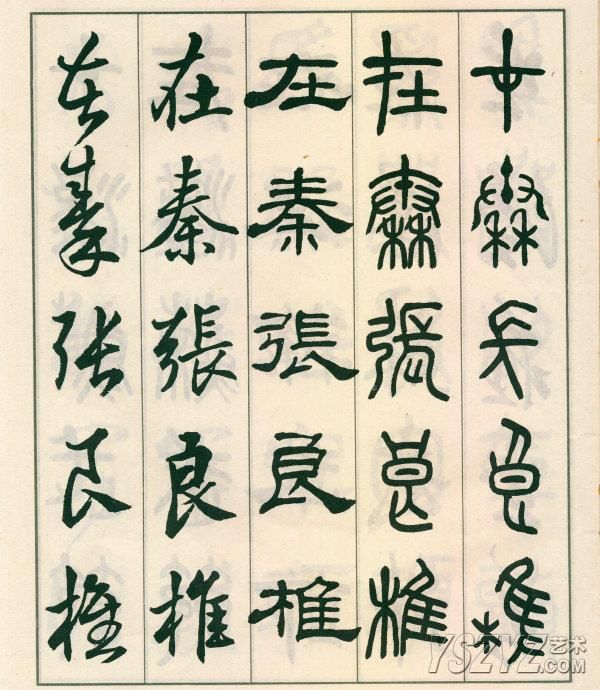 在秦張良椎
在秦張良椎
在秦張良椎
在秦張良椎
在秦张良椎
YSZYZ艺术
.COM